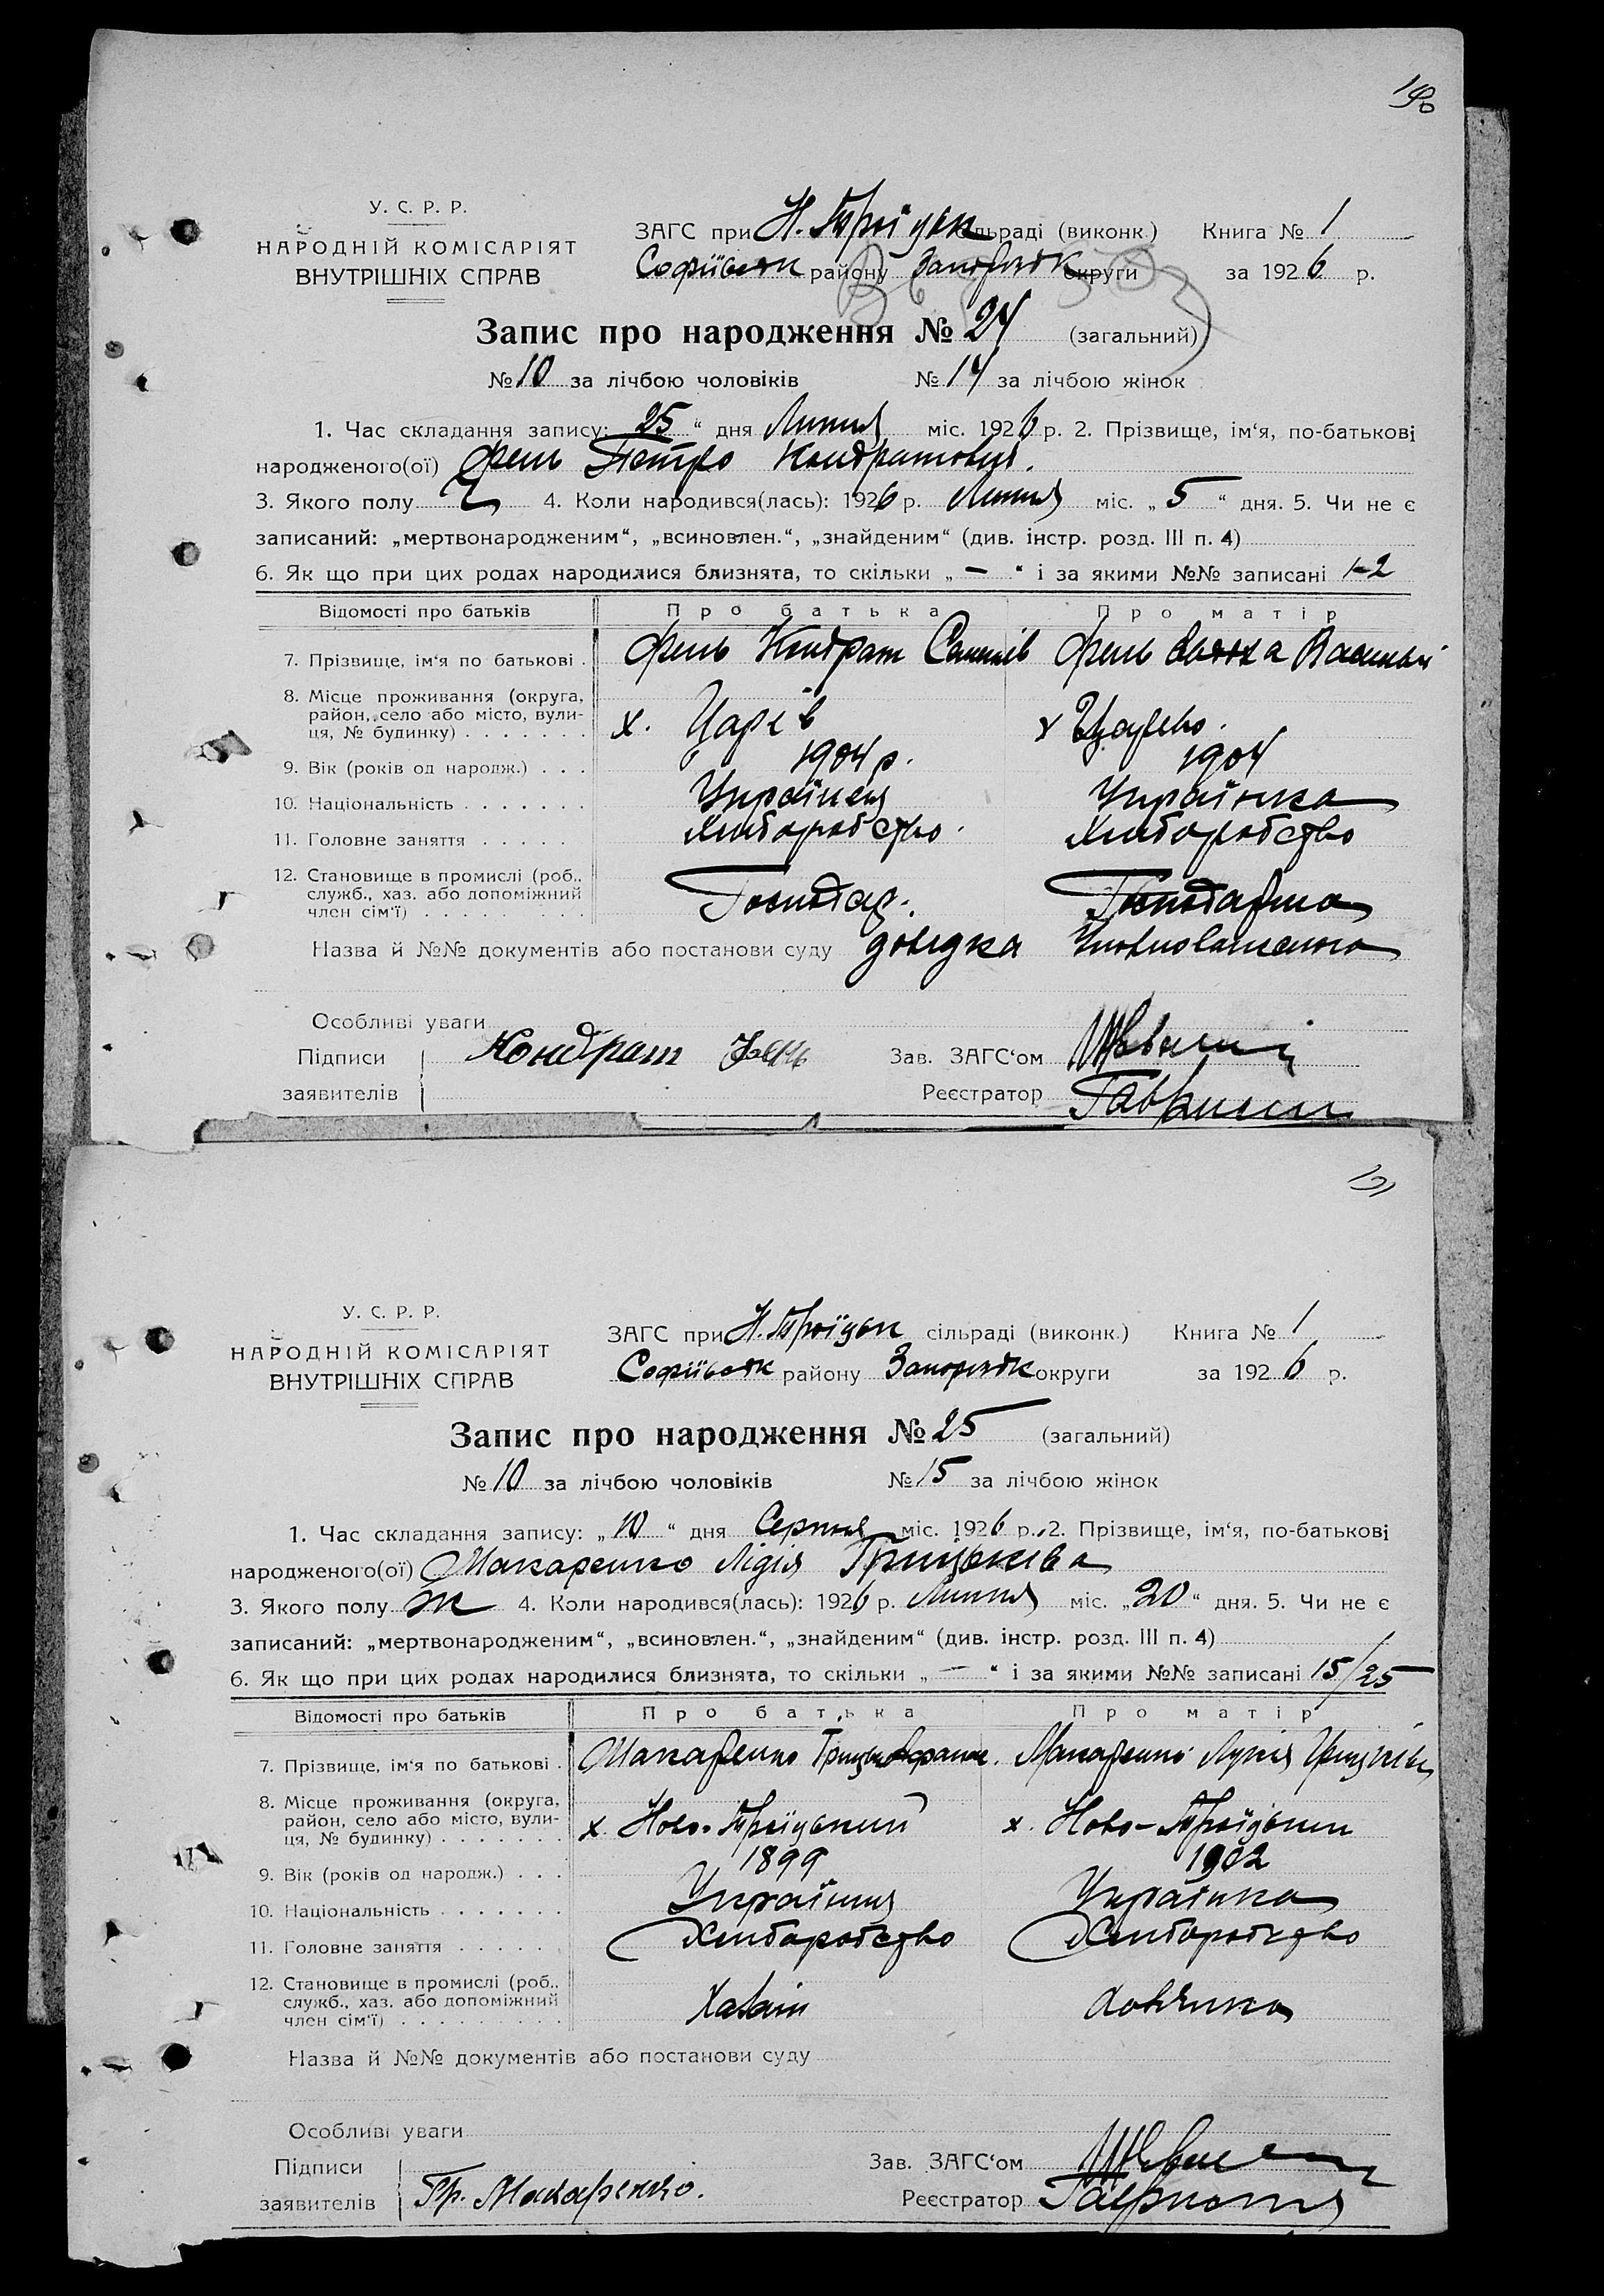 190
У. С. Р. Р.
НАРОДНІЙ КОМІСАРІЯТ
ВНУТРІШНІХ СПРАВ
ЗАГС при Н. Троїцьк сільраді (виконк.) Книга № 1
Софіївськ району Запорізьк округи за 1926 р.
Запис про народження № 24 (загальний)
№ 10 за лічбою чоловіків № 14 за лічбою жінок
1. Час складання запису: „25“ дня Липня міс. 1926 р. 2. Прізвище, ім‘я, по-батькові
народженого(ої) Фень Петро Кондратович.
3. Якого полу Ч 4. Коли народився(лась): 1926 р. Липня міс. „5“ дня. 5. Чи не є
записаний: „мертвонародженим“, „всиновлен.“, „знайденим“ (див. інстр. розд. III п. 4)
6. Як що при цих родах народилися близнята, то скільки „—“ і за якими №№ записані 1-2
Відомості про батьків Про батька Про матір
7. Прізвище, ім‘я по батькові . Фень Кондрат Фень
8. Місце проживання (округа,
район, село або місто, вули-
ця, № будинку) . . . . . . . х. Царів
9. Вік (років од народж.) . . . 1904 р. 1904
10. Національність . . . . . . . Українец Українка
11. Головне заняття . . . . . Хліборобство. Хліборобство
12. Становище в промислі (роб.,
служб., хаз. або допоміжний
член сім‘ї) . . . . . . . . . Господар. Господарка
Назва й №№ документів або постанови суду довідка
Особливі уваги
Підписи Кондрат Фень Зав. ЗАГС‘ом
заявителів Реєстратор
191
У. С. Р. Р.
НАРОДНІЙ КОМІСАРІЯТ
ВНУТРІШНІХ СПРАВ
ЗАГС при Н. Троїцьк сільраді (виконк.) Книга № 1
Софіївськ району Запорізьк округи за 1926 р.
Запис про народження № 25 (загальний)
№ 10 за лічбою чоловіків № 15 за лічбою жінок
1. Час складання запису: „10“ дня Серпня міс. 1926 р. 2. Прізвище, ім‘я, по-батькові
народженого(ої) Макаренко Лідія Грицьківа
3. Якого полу ж 4. Коли народився(лась): 1926 р. Липня міс. „20“ дня. 5. Чи не є
записаний: „мертвонародженим“, „всиновлен.“, „знайденим“ (див. інстр. розд. III п. 4)
6. Як що при цих родах народилися близнята, то скільки „—“ і за якими №№ записані 15/25
Відомості про батьків Про батька Про матір
7. Прізвище, ім‘я по батькові . Макаренко Грицько Макаренко
8. Місце проживання (округа,
район, село або місто, вули-
ця, № будинку) . . . . . . . х. Ново-Троїцький х. Ново-Троїцький
9. Вік (років од народж.) . . . 1899 1902
10. Національність . . . . . . . Українец Українка
11. Головне заняття . . . . . Хліборобство Хліборобство
12. Становище в промислі (роб.,
служб., хаз. або допоміжний
член сім‘ї) . . . . . . . . . Хазаін
Назва й №№ документів або постанови суду
Особливі уваги
Підписи Зав. ЗАГС‘ом
заявителів Гр. Макаренко. Реєстратор